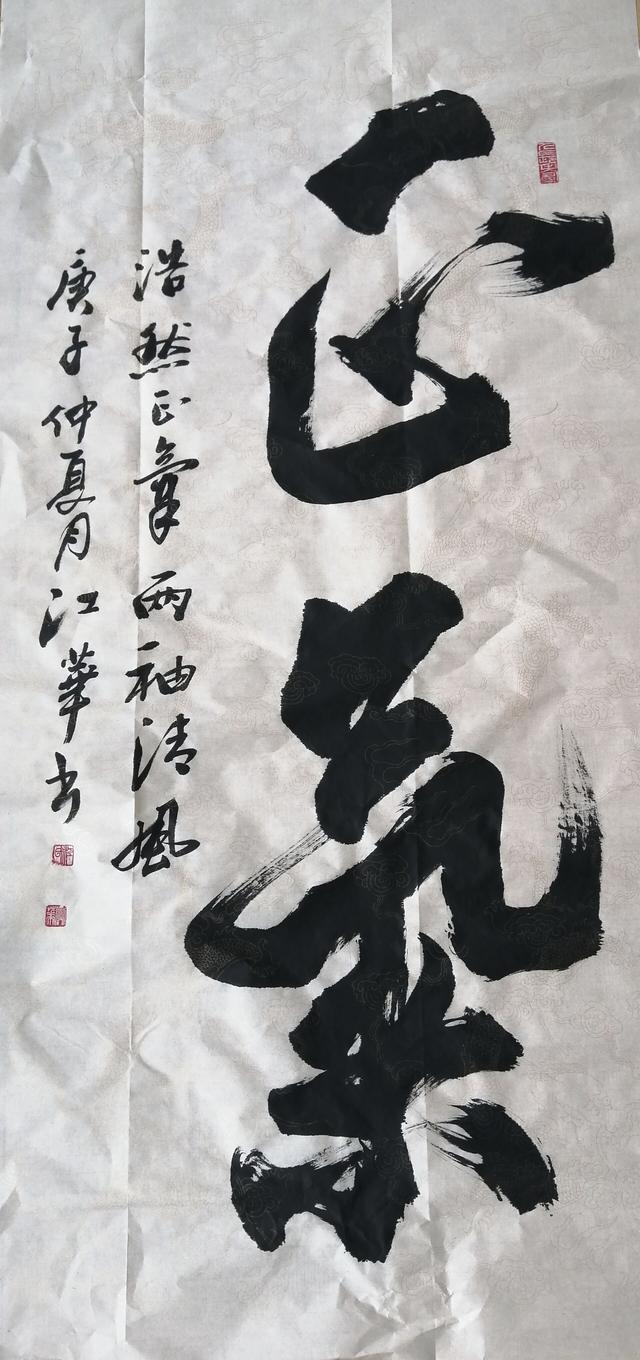 正氣
浩然正氣两袖清風
庚子仲夏月江華书